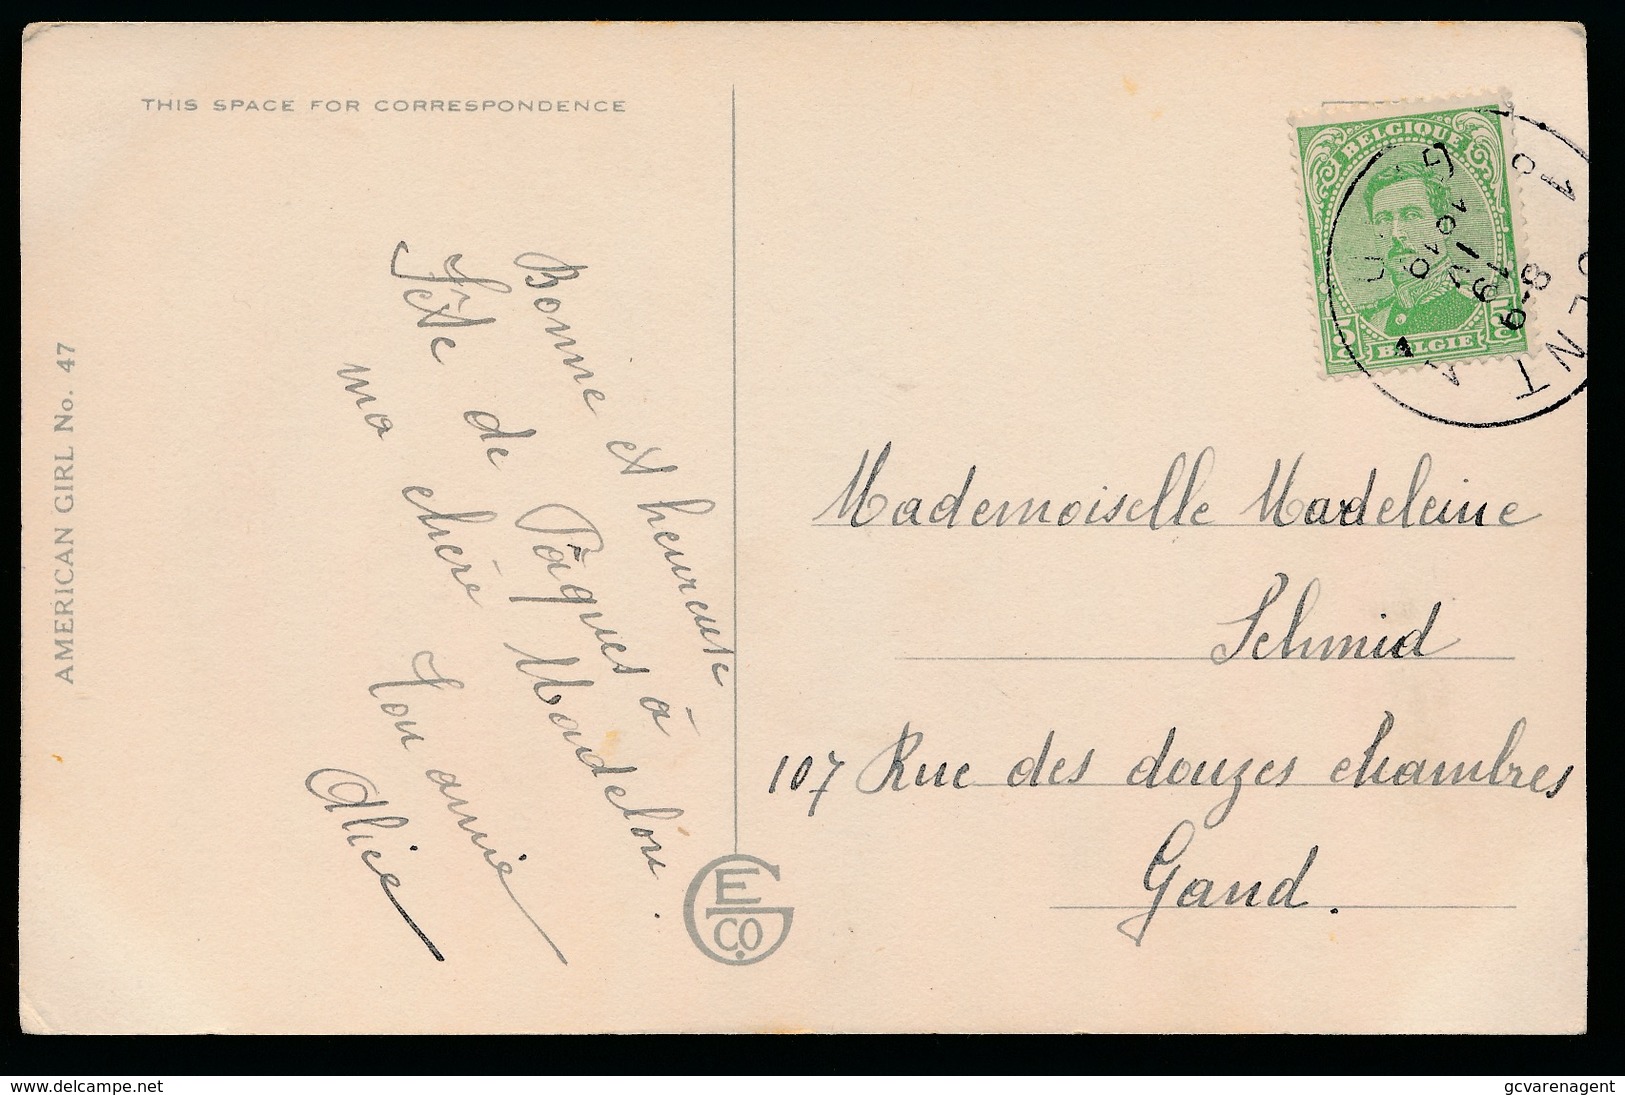 THIS SPACE FOR CORRESPONDENCE
AMERICAN GIRL No. 47
Bonne et heureuse
Fête de Pâques à
ma chère Madelon.
Ton amie
Alice
E
Co.
BELGIQUE
5 5
BELGIE
GENT
8-9
1919
GAND
Mademoiselle Madeleine
Schmid
107 Rue des douzes chambres
Gand.
delcampe.net
gcvarenagent